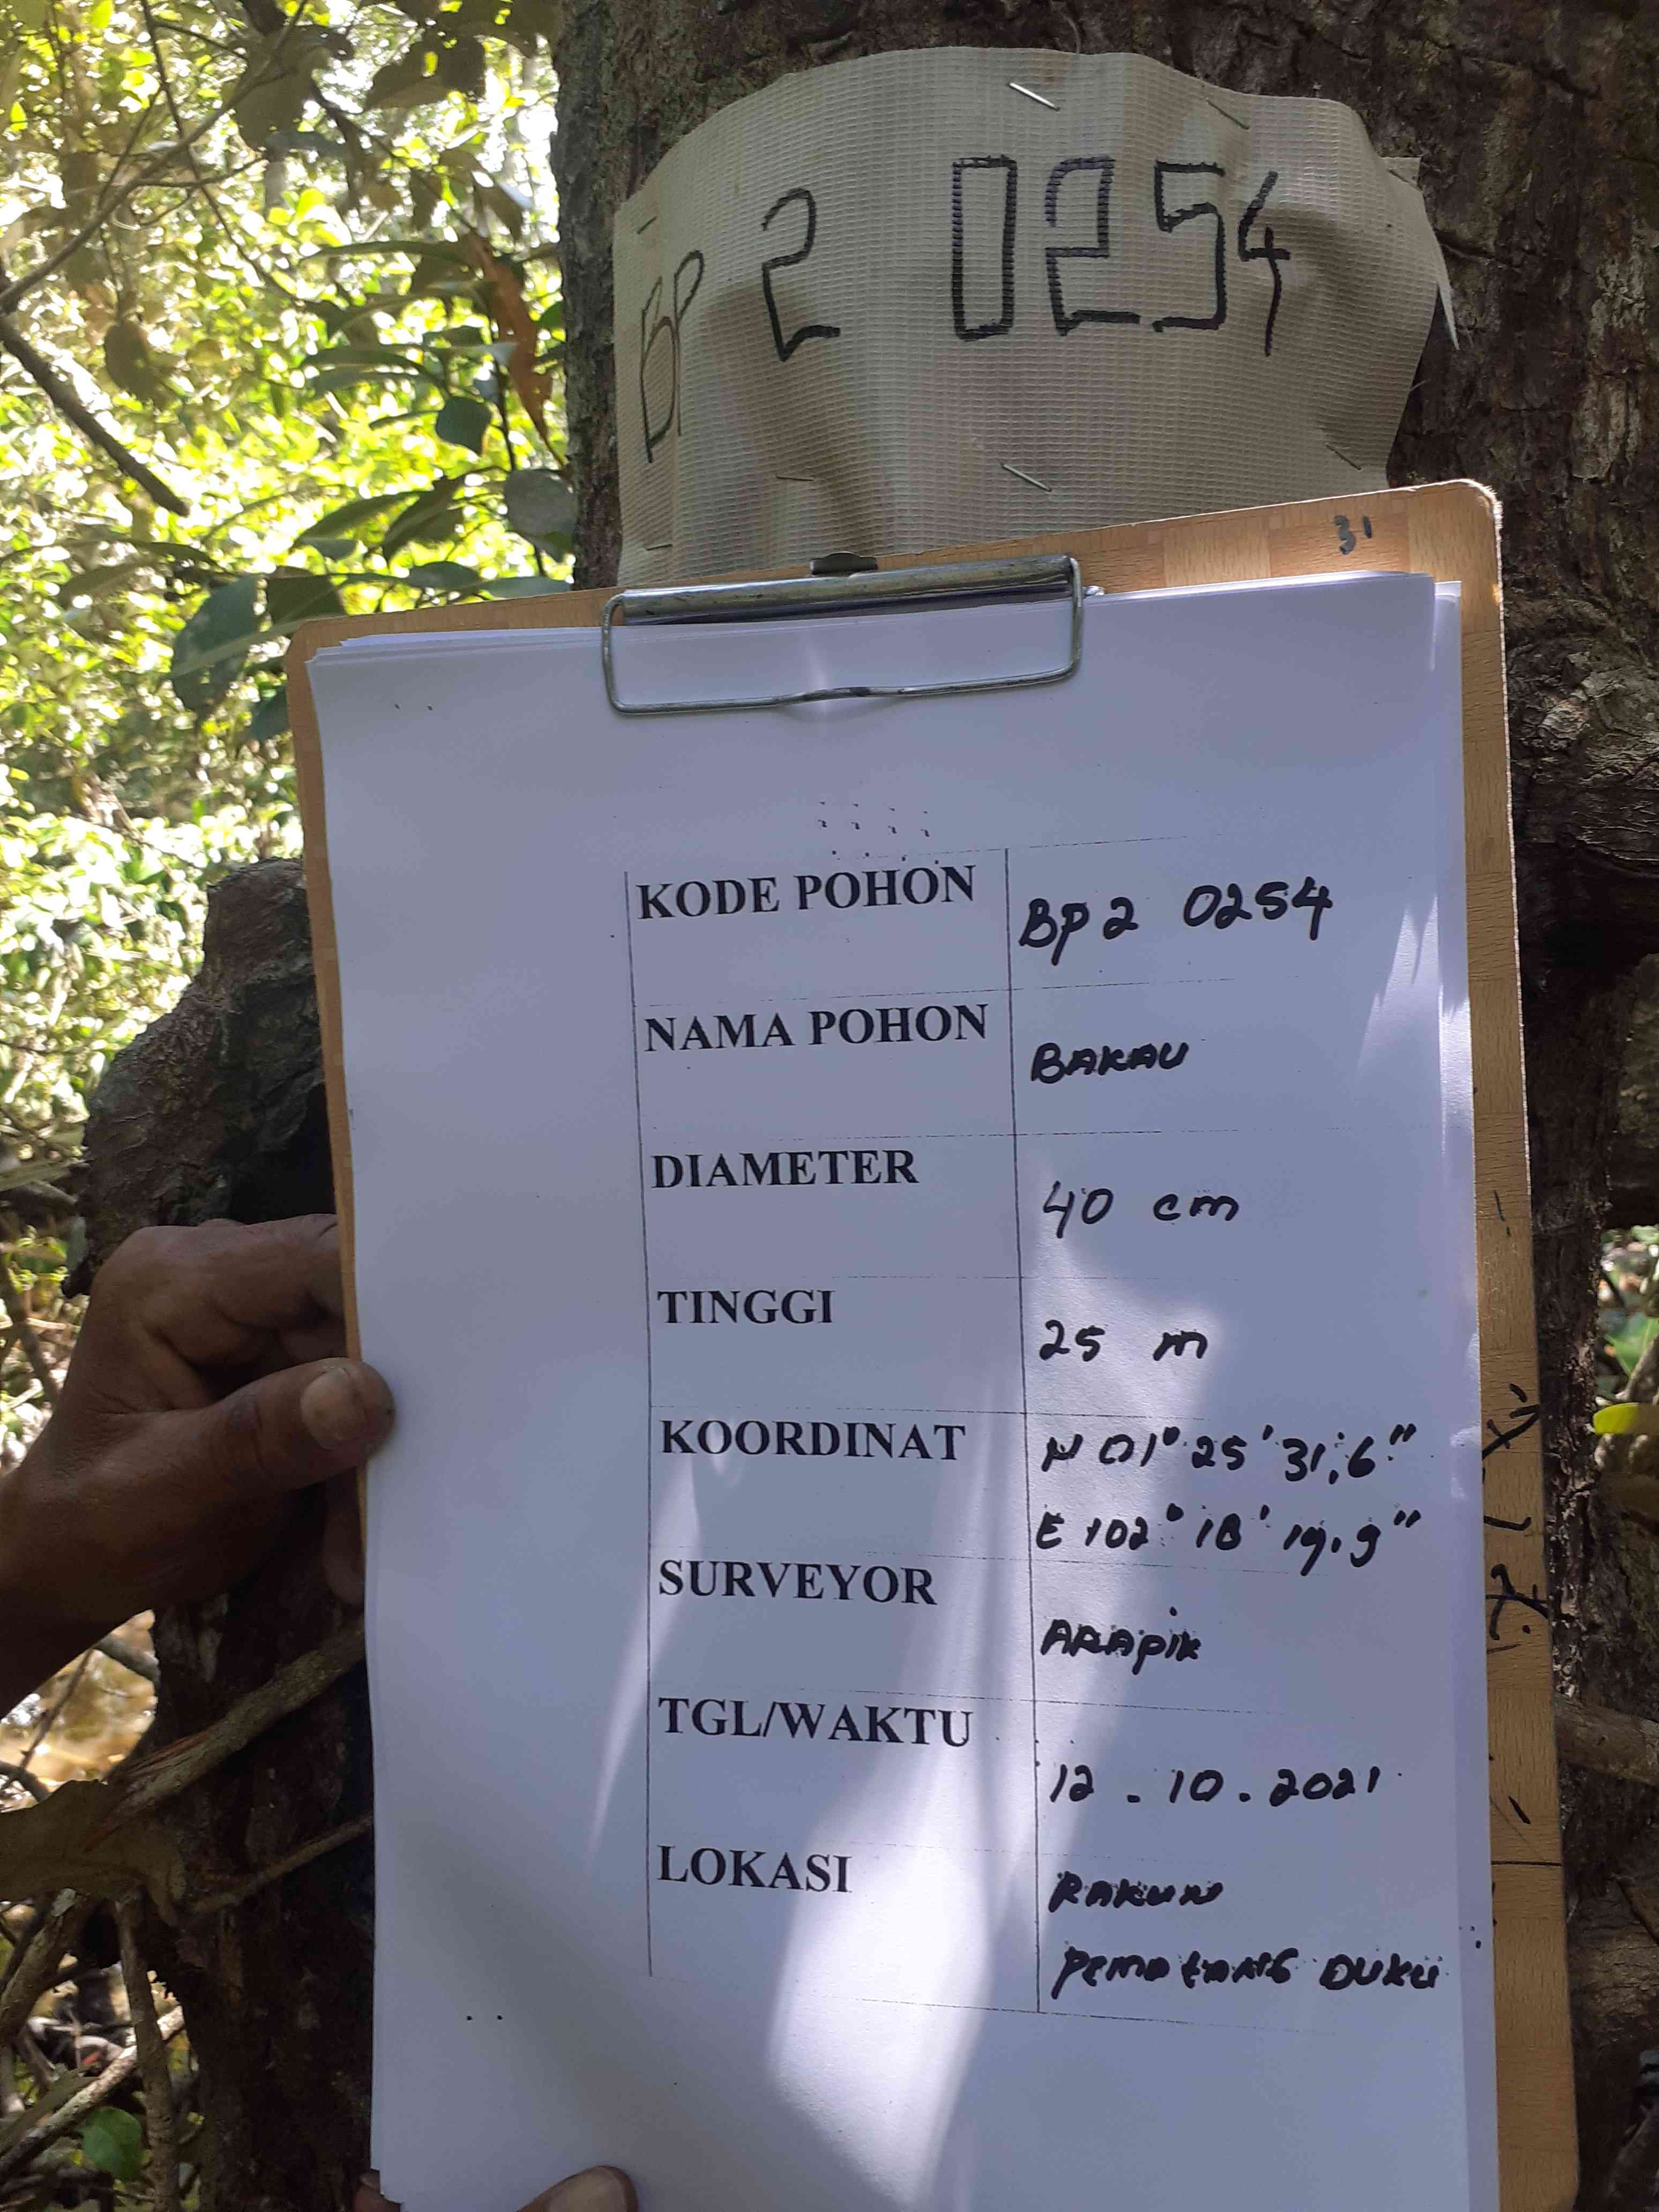 BP 2 0254
31
KODE POHON BP2 0254
NAMA POHON BAKAU
DIAMETER 40 cm
TINGGI 25 m
KOORDINAT N 01° 25' 31,6"
E 102° 18' 19.9"
SURVEYOR ARAPIK
TGL/WAKTU 12 . 10 . 2021
LOKASI RAKUN
PEMATANG DUKU